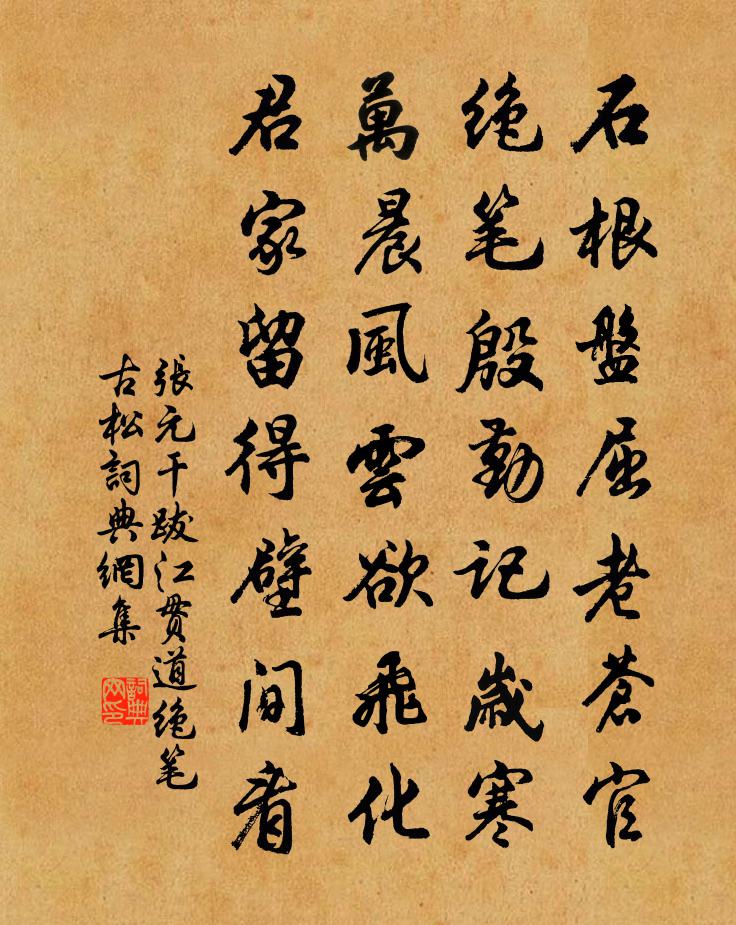 石根盤屈老蒼官
绝笔殷勤記歲寒
萬晨風雲欲飛化
君家留得壁間看
張元干跋江貫道绝笔
古松詞典網集
詞典網印